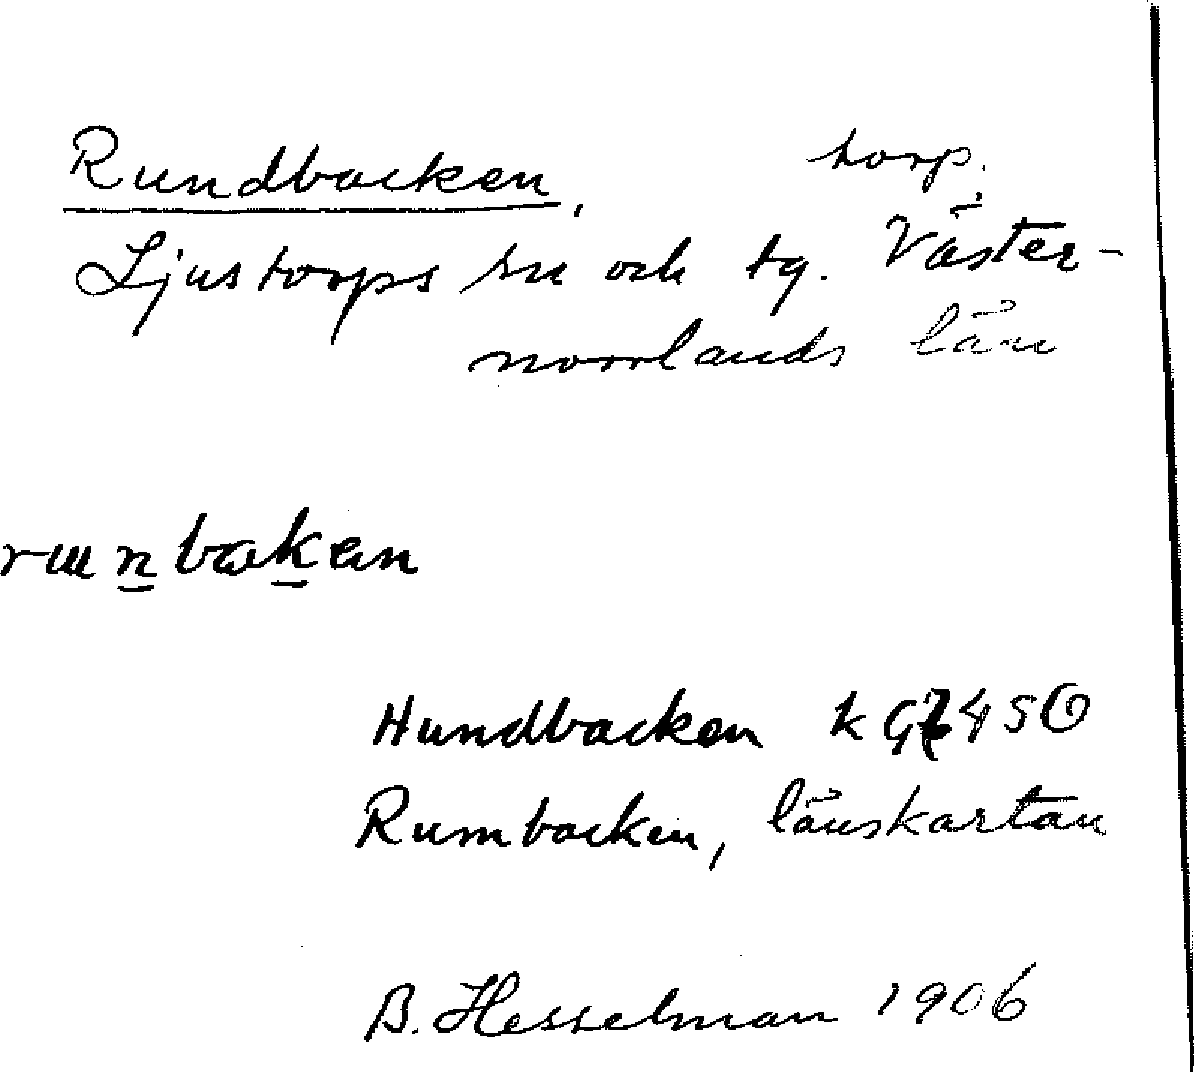 Rundbacken, torp.
Ljustorps sn och tg. Väster-
norrlands län
runbaken
Hundbacken
Rumbacken, länskartan
B. Hesselman 1906